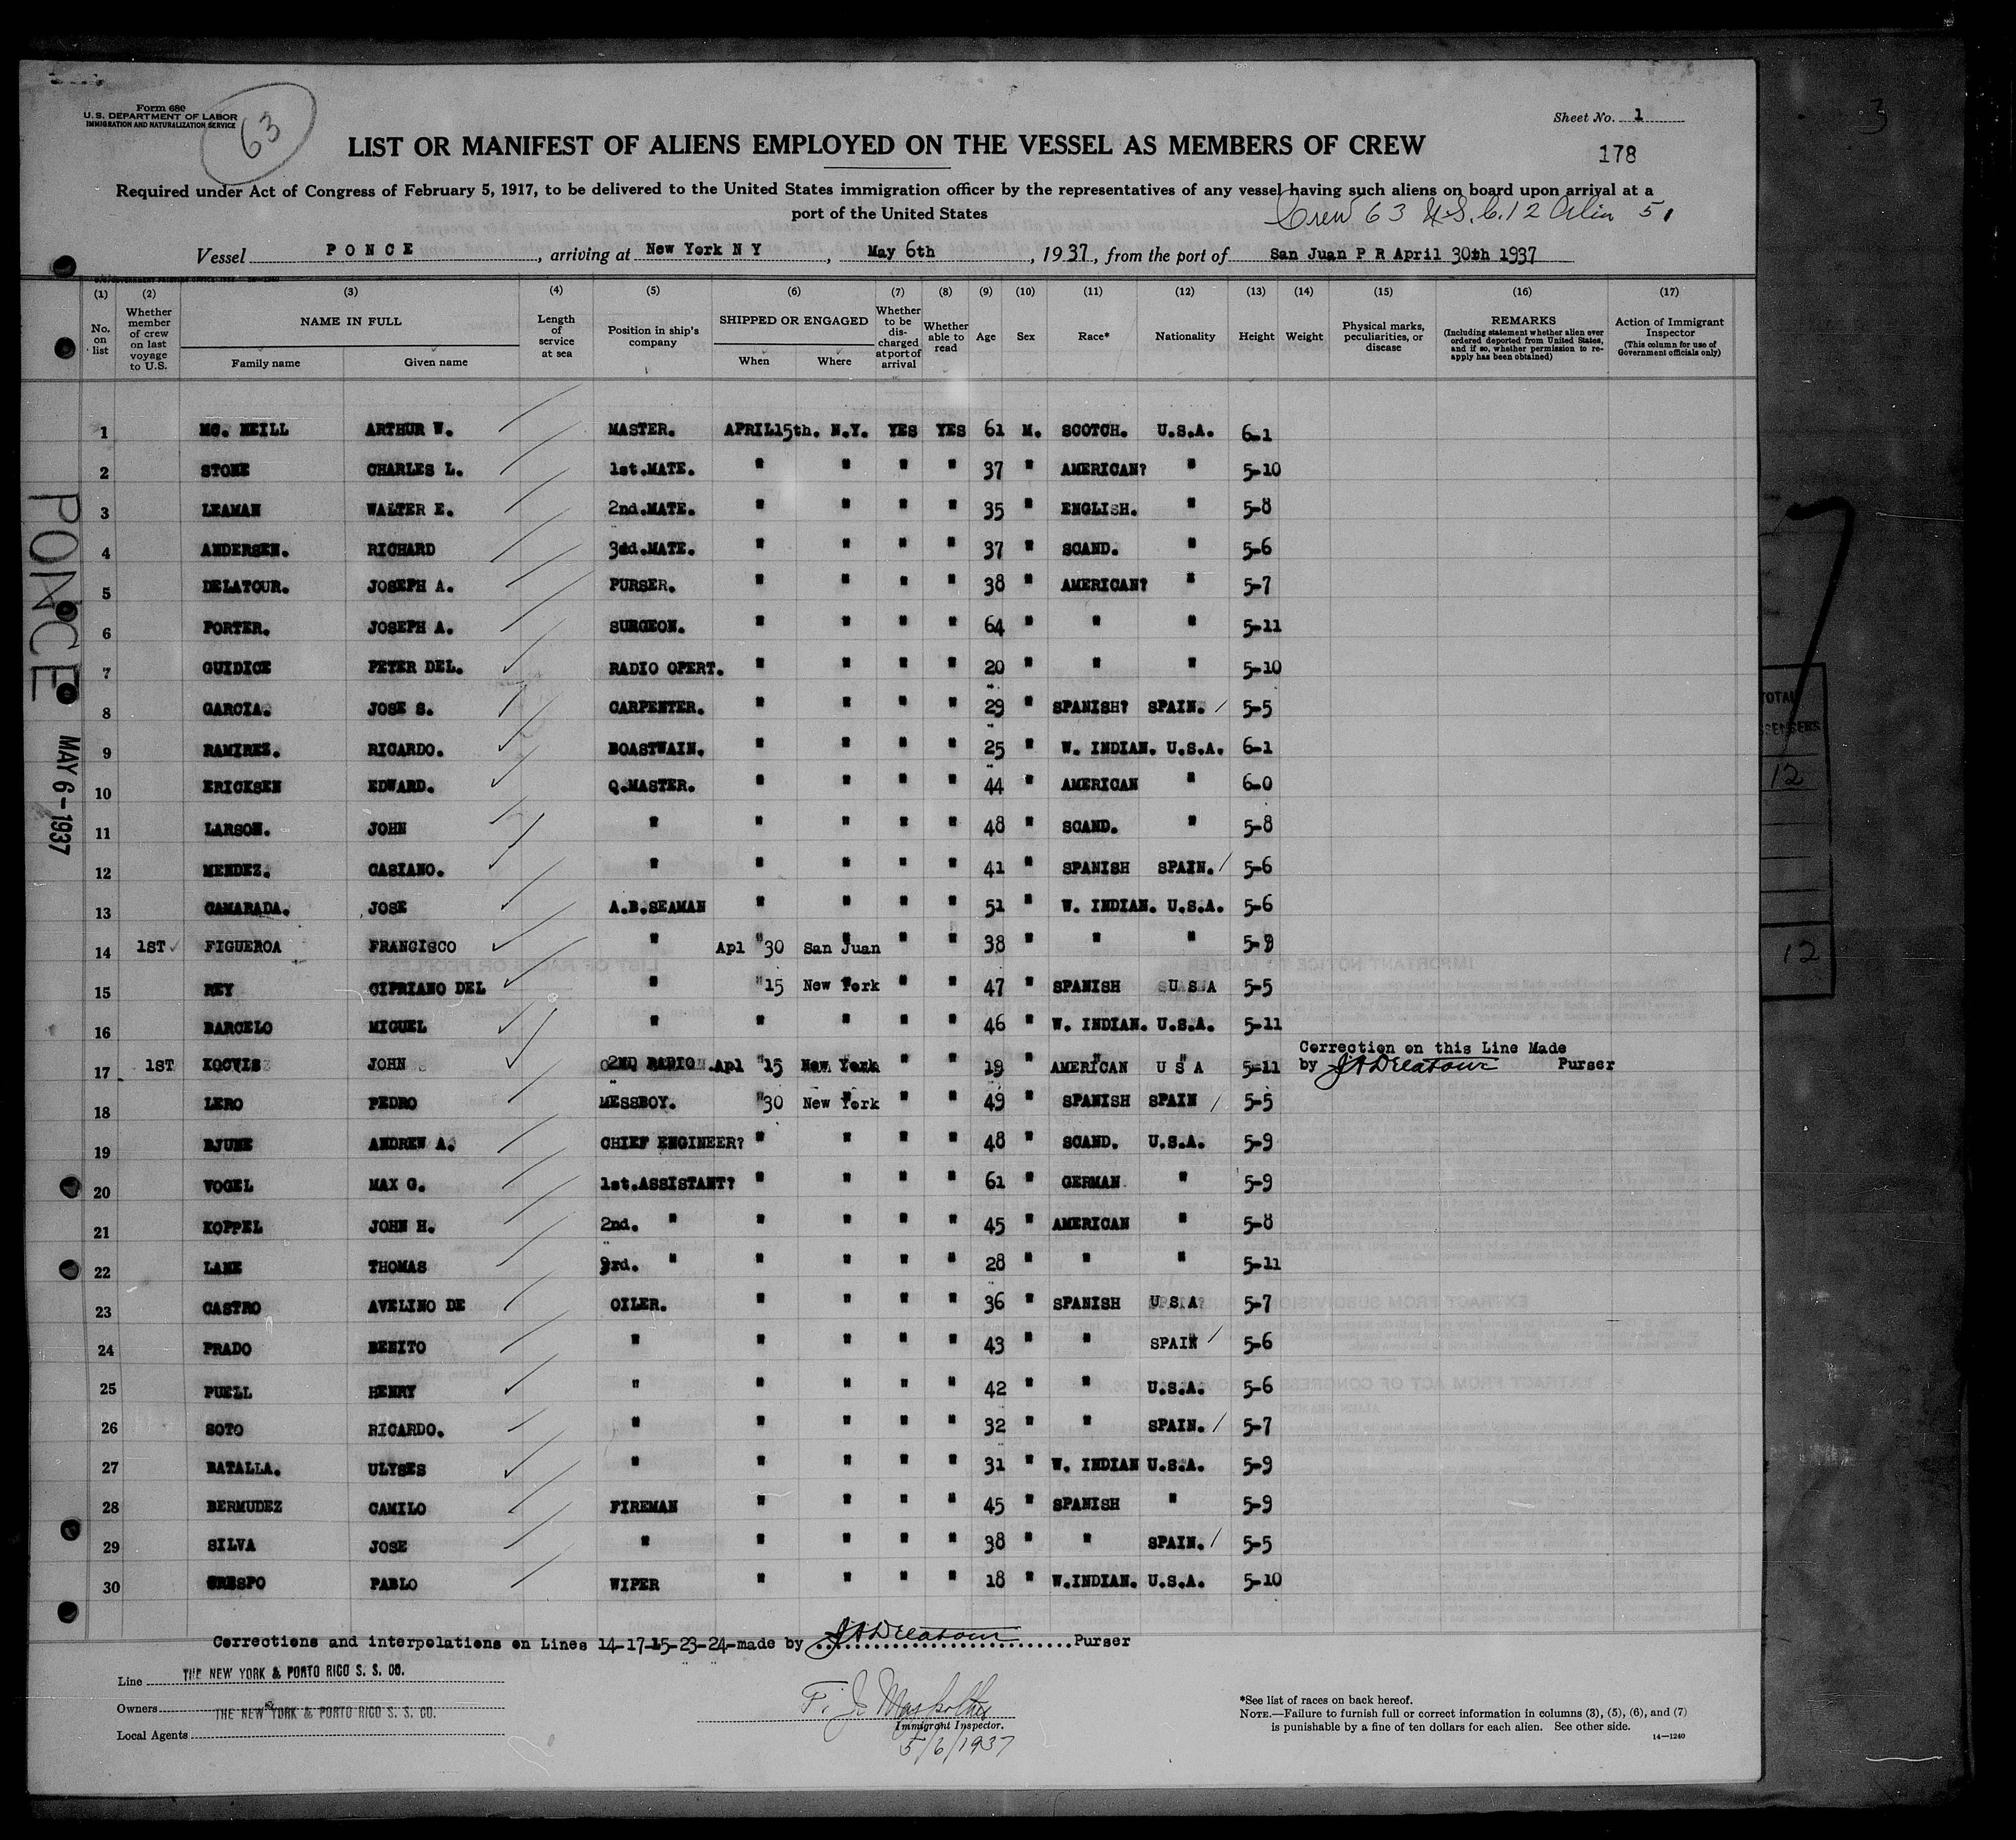 Form 680
U.S. DEPARTMENT OF LABOR
IMMIGRATION AND NATURALIZATION SERVICE
63
Sheet No. 1
178
3
LIST OR MANIFEST OF ALIENS EMPLOYED ON THE VESSEL AS MEMBERS OF CREW
Required under Act of Congress of February 5, 1917, to be delivered to the United States immigration officer by the representatives of any vessel having such aliens on board upon arrival at a
port of the United States
Crew 63 U.S.C. 12 Alien 51
Vessel PONCE, arriving at New York N Y, May 6th, 1937, from the port of San Juan P R April 30th 1937
(1) (2) (3) (4) (5) (6) (7) (8) (9) (10) (11) (12) (13) (14) (15) (16) (17)
No. on list
Whether member of crew on last voyage to U.S.
NAME IN FULL
Family name
Given name
Length of service at sea
Position in ship's company
SHIPPED OR ENGAGED
When
Where
Whether to be discharged at port of arrival
Whether able to read
Age
Sex
Race*
Nationality
Height
Weight
Physical marks, peculiarities, or disease
REMARKS
(Including statement whether alien ever ordered deported from United States, and if so, whether permission to reapply has been obtained)
Action of Immigrant Inspector
(This column for use of Government officials only)
1 MC. NEILL ARTHUR W. MASTER. APRIL15th. N.Y. YES YES 61 M. SCOTCH. U.S.A. 6-1
2 STONE CHARLES L. 1st.MATE. " " " " 37 " AMERICAN? " 5-10
3 LEAMAN WALTER E. 2nd.MATE. " " " " 35 " ENGLISH. " 5-8
4 ANDERSEN. RICHARD 3rd.MATE. " " " " 37 " SCAND. " 5-6
5 DELATOUR. JOSEPH A. PURSER. " " " " 38 " AMERICAN? " 5-7
6 PORTER. JOSEPH A. SURGEON. " " " " 64 " " " 5-11
7 GUIDICE PETER DEL. RADIO OPERT. " " " " 20 " " " 5-10
8 GARCIA. JOSE S. CARPENTER. " " " " 29 " SPANISH? SPAIN. 5-5
9 RAMIREZ. RICARDO. BOASTWAIN. " " " " 25 " W. INDIAN. U.S.A. 6-1
10 ERICKSEN EDWARD. Q.MASTER. " " " " 44 " AMERICAN " 6-0
11 LARSON. JOHN " " " " " 48 " SCAND. " 5-8
12 MENDEZ. CASIANO. " " " " " 41 " SPANISH SPAIN. 5-6
13 CAMARADA. JOSE A.B.SEAMAN " " " " 51 " W. INDIAN. U.S.A. 5-6
14 1ST FIGUEROA FRANCISCO " Apl "30 San Juan " " 38 " " " 5-9
15 REY CIPRIANO DEL " "15 New York " " 47 " SPANISH U S A 5-5
16 BARCELO MIGUEL " " " " " 46 " W. INDIAN. U.S.A. 5-11
17 1ST KOCVIS JOHN 2ND RADIO Apl "15 New York " " 19 " AMERICAN U S A 5-11 Correction on this Line Made
by J A Delatour Purser
18 LERO PEDRO MESSBOY. "30 New York " " 49 " SPANISH SPAIN 5-5
19 BJUNE ANDREW A. CHIEF ENGINEER? " " " " 48 " SCAND. U.S.A. 5-9
20 VOGEL MAX G. 1st.ASSISTANT? " " " " 61 " GERMAN " 5-9
21 KOPPEL JOHN H. 2nd. " " " " " 45 " AMERICAN " 5-8
22 LANE THOMAS 3rd. " " " " " 28 " " " 5-11
23 CASTRO AVELINO DE OILER. " " " " 36 " SPANISH U.S.A? 5-7
24 PRADO BENITO " " " " " 43 " " SPAIN 5-6
25 PUELL HENRY " " " " " 42 " " U.S.A. 5-6
26 SOTO RICARDO. " " " " " 32 " " SPAIN. 5-7
27 BATALLA. ULYSES " " " " " 31 " W. INDIAN U.S.A. 5-9
28 BERMUDEZ CAMILO FIREMAN " " " " 45 " SPANISH " 5-9
29 SILVA JOSE " " " " " 38 " " SPAIN. 5-5
30 CRESPO PABLO WIPER " " " " 18 " W.INDIAN. U.S.A. 5-10
PONCE
MAY 6-1937
TOTAL
12
12
Corrections and interpolations on Lines 14-17-15-23-24-made by J A Delatour Purser
Line THE NEW YORK & PORTO RICO S. S. CO.
Owners THE NEW YORK & PORTO RICO S. S. CO.
Local Agents
Immigrant Inspector.
5/6/1937
*See list of races on back hereof.
NOTE.—Failure to furnish full or correct information in columns (3), (5), (6), and (7)
is punishable by a fine of ten dollars for each alien. See other side.
14—1240